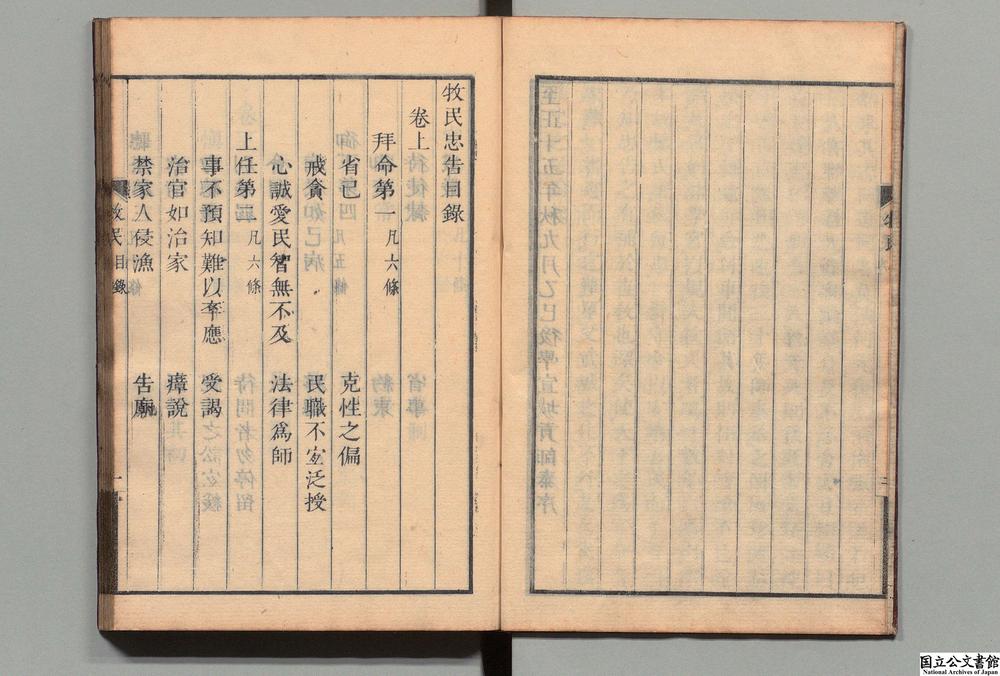 牧民忠告目錄
卷上
拜命第一 凡六條
省己 克性之偏
戒貪 民職不宜泛授
心誠愛民智無不及 法律爲師
上任第二 凡六條
事不預知難以牽應 受謁
治官如治家 瘴說
禁家人侵漁 告廟
牧民 目錄 一
國立公文書館
National Archives of Japan